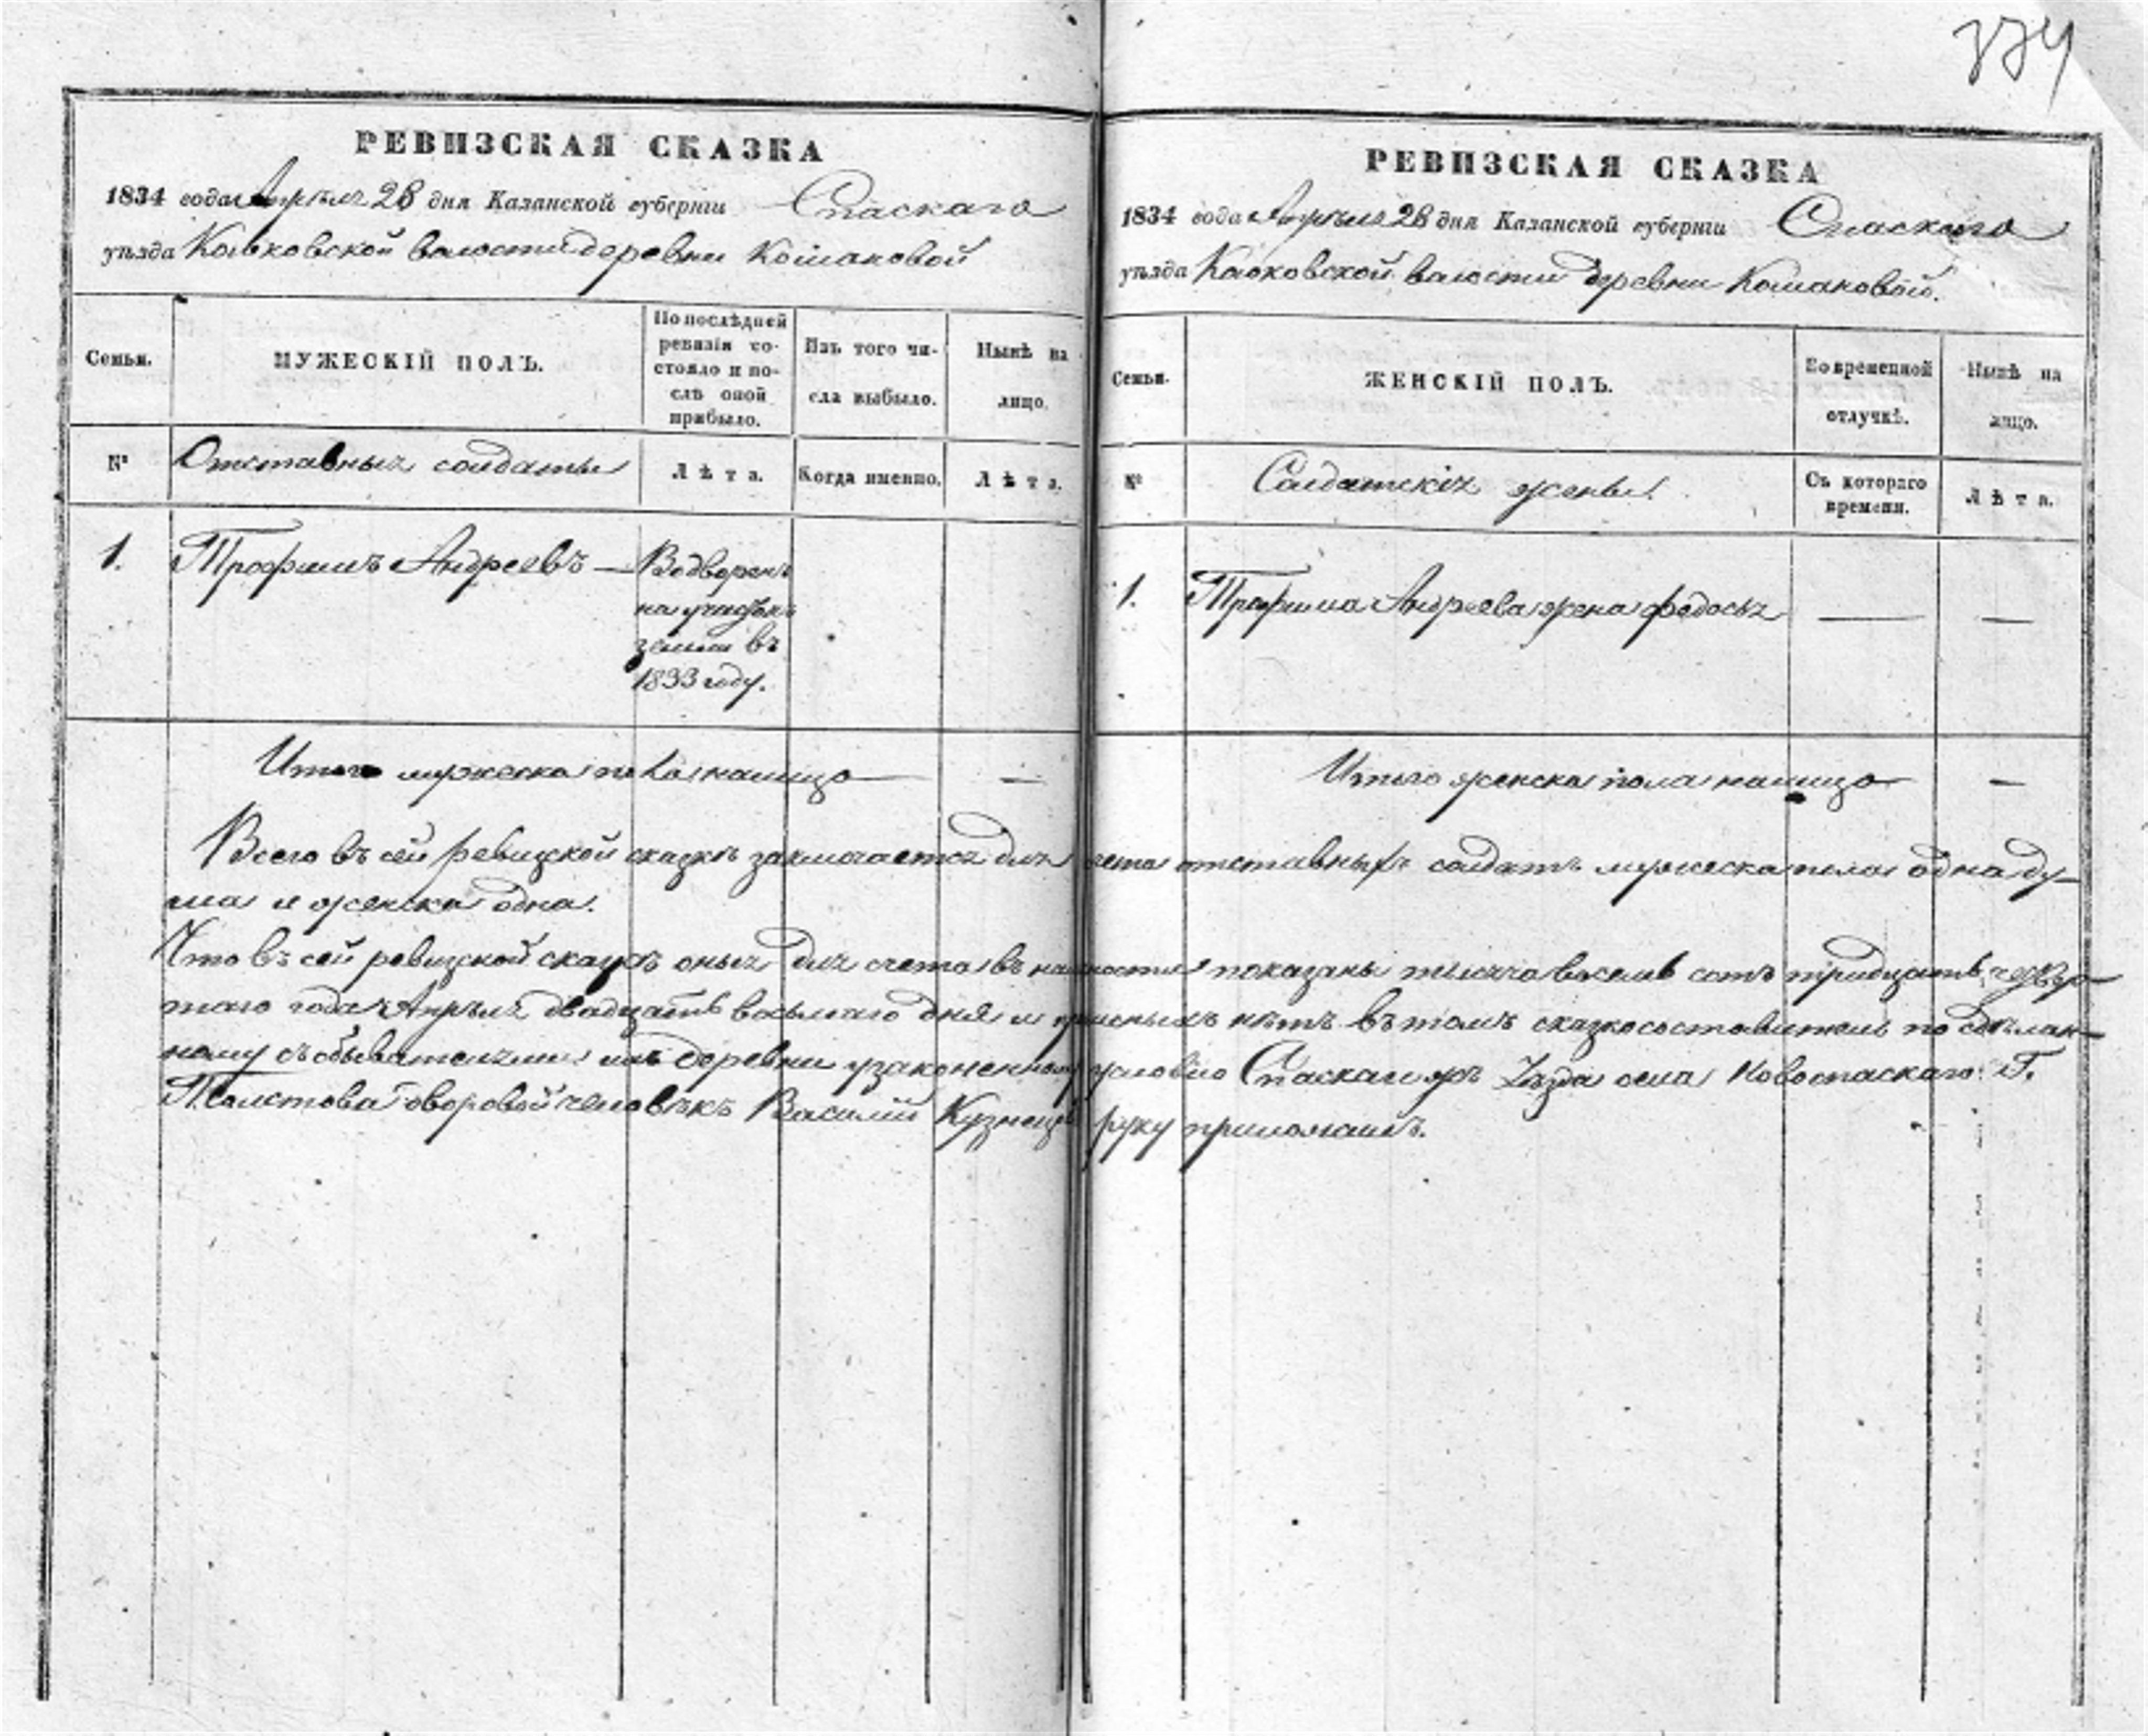 374
РЕВИЗСКАЯ СКАЗКА
1834 года Апрѣля 28 дня Казанской губерніи Спаскаго
уѣзда волости деревни Кошаковой
Семьи.
МУЖЕСКІЙ ПОЛЪ.
По послѣдней
ревизіи со-
стояло и по-
слѣ оной
прибыло.
Изъ того чи-
сла выбыло.
Нынѣ на
лицо.
№
Отставныя солдаты
Лѣта.
Когда именно.
Лѣта.
1.
Трофимъ Андреевъ —
Водворенъ
на участкѣ
земли въ
1833 году.
Итого мужеска пола налицо —
Всего въ сей ревизской сказкѣ заключается для счета отставныхъ солдатъ мужеска пола одна ду-
ша и женска одна.
Что въ сей ревизской сказкѣ оныя для счета въ показаны тысяча восемь сотъ тридцать четвер-
таго года Апрѣля двадцать восьмаго дня и нѣтъ въ томъ сказкосоставитель по сдѣлан-
ному съ обывателями деревни узаконенному условію Спаскаго уѣзда села Новоспаскаго Г.
Толстова дворовой человѣкъ Василій Кузнецовъ руку приложилъ.
РЕВИЗСКАЯ СКАЗКА
1834 года Апрѣля 28 дня Казанской губерніи Спаскаго
уѣзда волости деревни Кошаковой.
Семьи.
ЖЕНСКІЙ ПОЛЪ.
Во временной
отлучкѣ.
Нынѣ на
лицо.
№
Солдатскія жены.
Съ котораго
времени.
Лѣта.
1.
Трофима Андреева жена Федосья — —
Итого женска пола налицо —